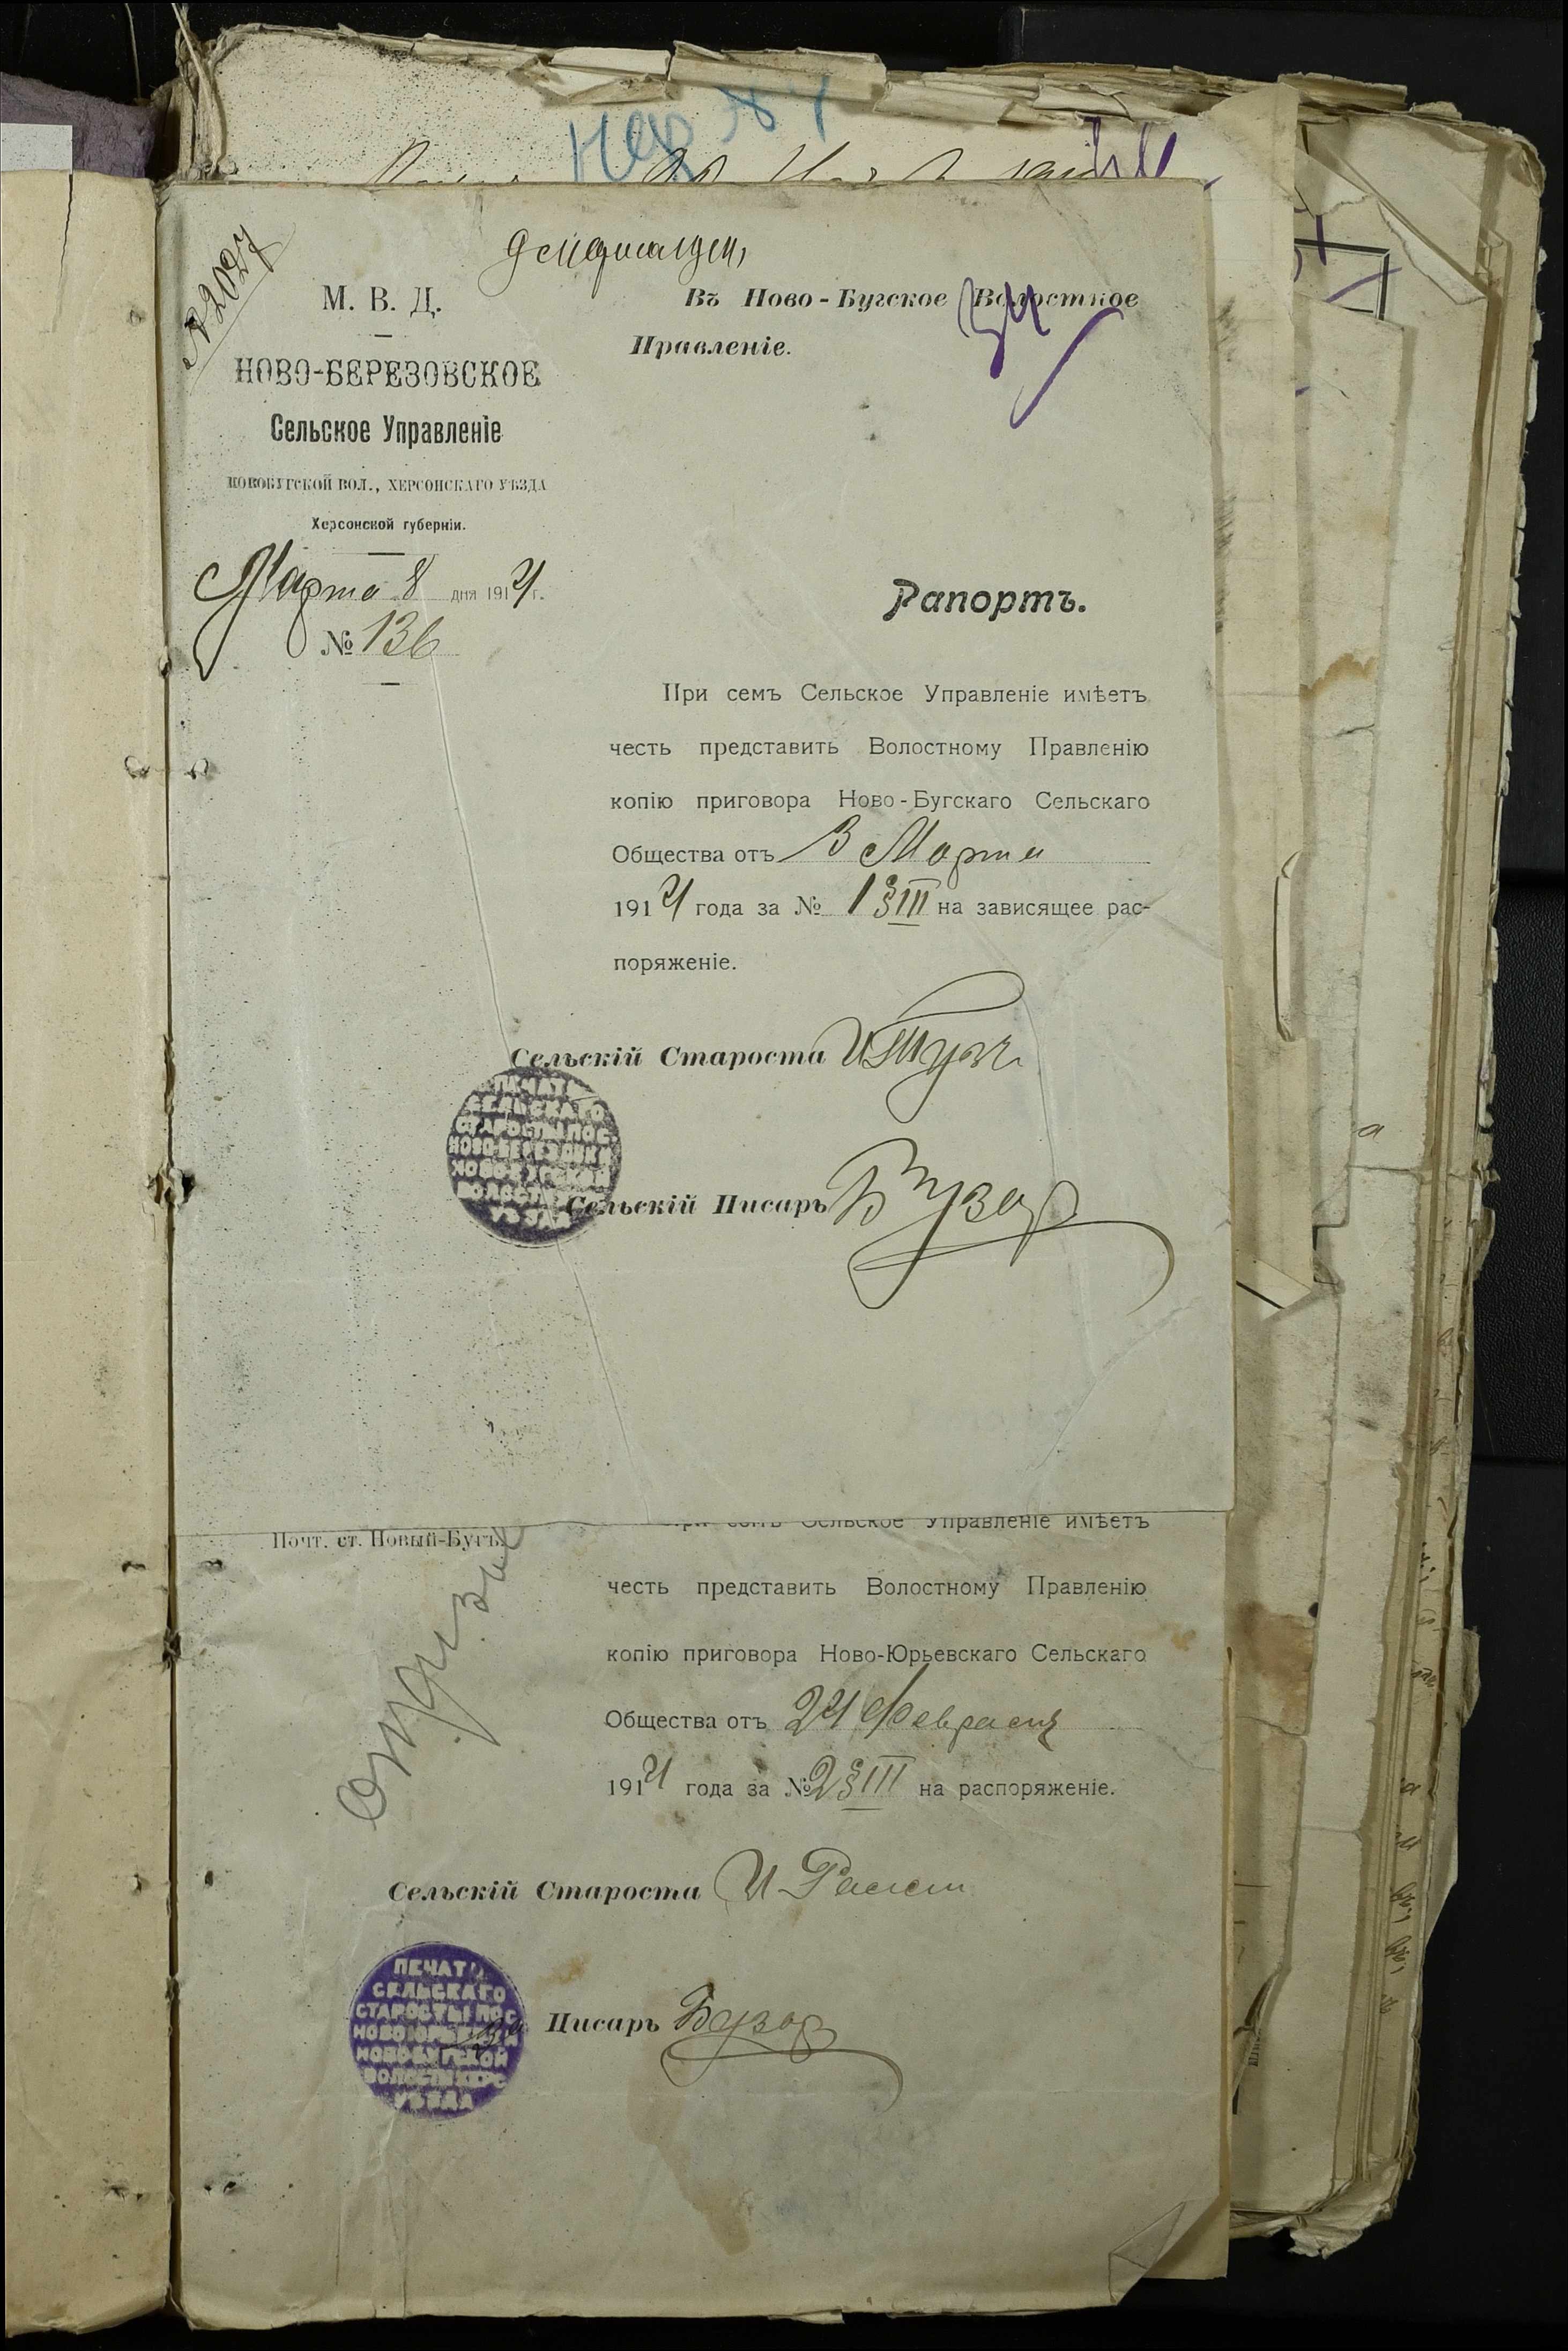 № 2027
М. В. Д.
НОВО-БЕРЕЗОВСКОЕ
Сельское Управленіе
НОВОБУГСКОЙ ВОЛ., ХЕРСОНСКАГО УѢЗДА
Херсонской губерніи.
Марта 8 дня 1914 г.
№ 136
Въ Ново-Бугское Волостное
Правленіе.
Рапортъ.
При семъ Сельское Управленіе имѣетъ
честь представить Волостному Правленію
копію приговора Ново-Бугскаго Сельскаго
Общества отъ 3 Марта
1914 года за № 1 § III на зависящее рас-
поряженіе.
Сельскій Староста
ПЕЧАТЬ
СЕЛЬСКАГО
СТАРОСТЫ ПОС.
НОВО-БЕРЕЗОВКИ
НОВОБУГСКОЙ
ВОЛОСТИ
УѢЗДА
Сельскій Писарь Бузор
Почт. ст. Новый-Бугъ.
При семъ Сельское Управленіе имѣетъ
честь представить Волостному Правленію
копію приговора Ново-Юрьевскаго Сельскаго
Общества отъ 24 Февраля
1914 года за № 2 § III на распоряженіе.
Сельскій Староста
ПЕЧАТЬ
СЕЛЬСКАГО
СТАРОСТЫ ПОС
НОВОЮРЬЕВКИ
НОВОБУГСКОЙ
ВОЛОСТИ ХЕРС
УѢЗДА
Писарь Бузор